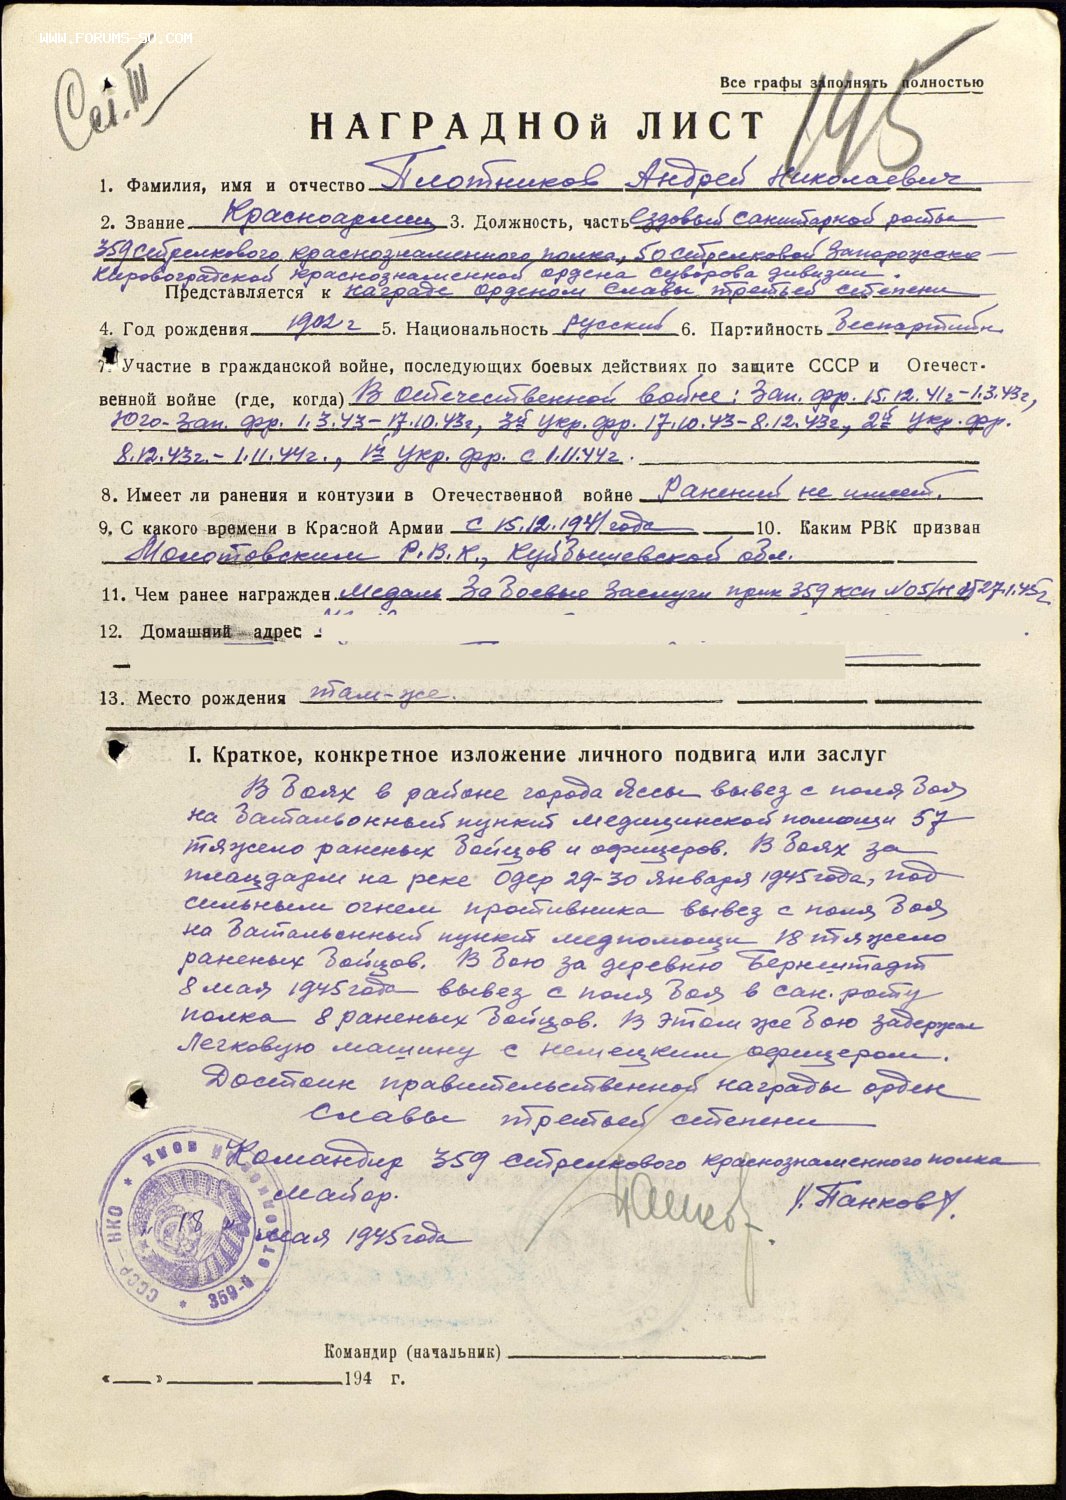 WWW.FORUMS-SU.COM
Все графы заполнять полностью
145
НАГРАДНОЙ ЛИСТ
1. Фамилия, имя и отчество Плотников Андрей Николаевич
2. Звание Красноармеец 3. Должность, часть Ездовый санитарной роты
359 стрелкового краснознаменного полка, 50 стрелковой Запорожско-
Кировоградской краснознаменной ордена суворова дивизии.
Представляется к награде орденом Славы третьей степени
4. Год рождения 1902 г 5. Национальность русский 6. Партийность Беспартийн
7. Участие в гражданской войне, последующих боевых действиях по защите СССР и Отечест-
венной войне (где, когда) В отечественной войне: Зап. фр. 15.12.41г-1.3.43г,
Юго-Зап. фр. 1.3.43-17.10.43г, 3й укр. фр. 17.10.43-8.12.43г., 2й укр. фр.
8.12.43г.-1.11.44г., 1й укр. фр. с 1.11.44г.
8. Имеет ли ранения и контузии в Отечественной войне Ранений не имеет.
9. С какого времени в Красной Армии с 15.12.1941 года 10. Каким РВК призван
Молотовским Р.В.К., Куйбышевской обл.
11. Чем ранее награжден Медаль За Боевые Заслуги прик 359 ксп №05/н от 27.1.45г
12. Домашний адрес
13. Место рождения там-же.
I. Краткое, конкретное изложение личного подвига или заслуг
В боях в районе города Яссы вывез с поля боя
на батальонный пункт медицинской помощи 57
тяжело раненых бойцов и офицеров. В боях за
плацдарм на реке Одер 29-30 января 1945 года, под
сильным огнем противника вывез с поля боя
на батальонный пункт медпомощи 18 тяжело
раненых бойцов. В бою за деревню Бернштадт
8 мая 1945 года вывез с поля боя в сан. роту
полка 8 раненых бойцов. В этом же бою задержал
легковую машину с немецким офицером.
Достоин правительственной награды орден
Славы третьей степени
Командир 359 стрелкового краснознаменного полка
майор. /Панков/.
"18" мая 1945 года
СССР-НКО * 359-й
Командир (начальник)
« » 194 г.